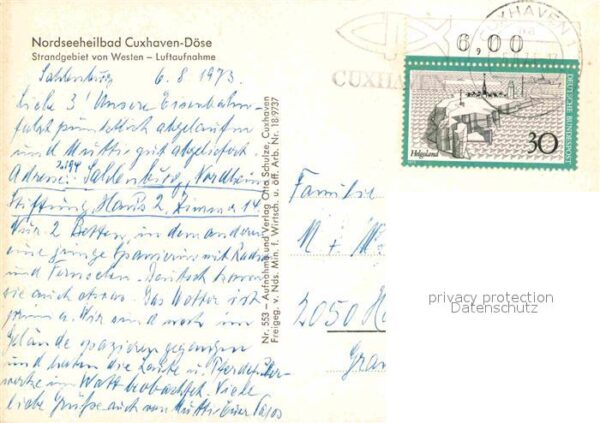 Nordseeheilbad Cuxhaven-Döse
Strandgebiet von Westen - Luftaufnahme
Sahlenburg 6.8.1973.
Liebe 3! Unsere Eisenbahn-
fahrt pünktlich abgelaufen
und Mutti gut abgeliefert.
Adresse: Sahlenburg, Nordheim
Stiftung, Haus 2, Zimmer 14
Nur 2 Betten, in dem anderen
eine junge Spanierin mit Radio
und Fernsehen. Deutsch kann
sie auch etwas. Das Wetter ist
prima. Wir sind noch im
Gelände spazieren gegangen
und haben die Leute u. Pferdefuhr-
werke im Watt beobachtet. Viele
liebe Grüße auch von Mutti Euer
Nr. 553 — Aufnahme und Verlag Otto Schulze, Cuxhaven
Freigeg. v. Nds. Min. f. Wirtsch. u. öff. Arb. Nr. 18/9737
CUXHAVEN
CUXHAVEN 1
6,00
DEUTSCHE BUNDESPOST
Helgoland
30
Familie
2050
privacy protection
Datenschutz